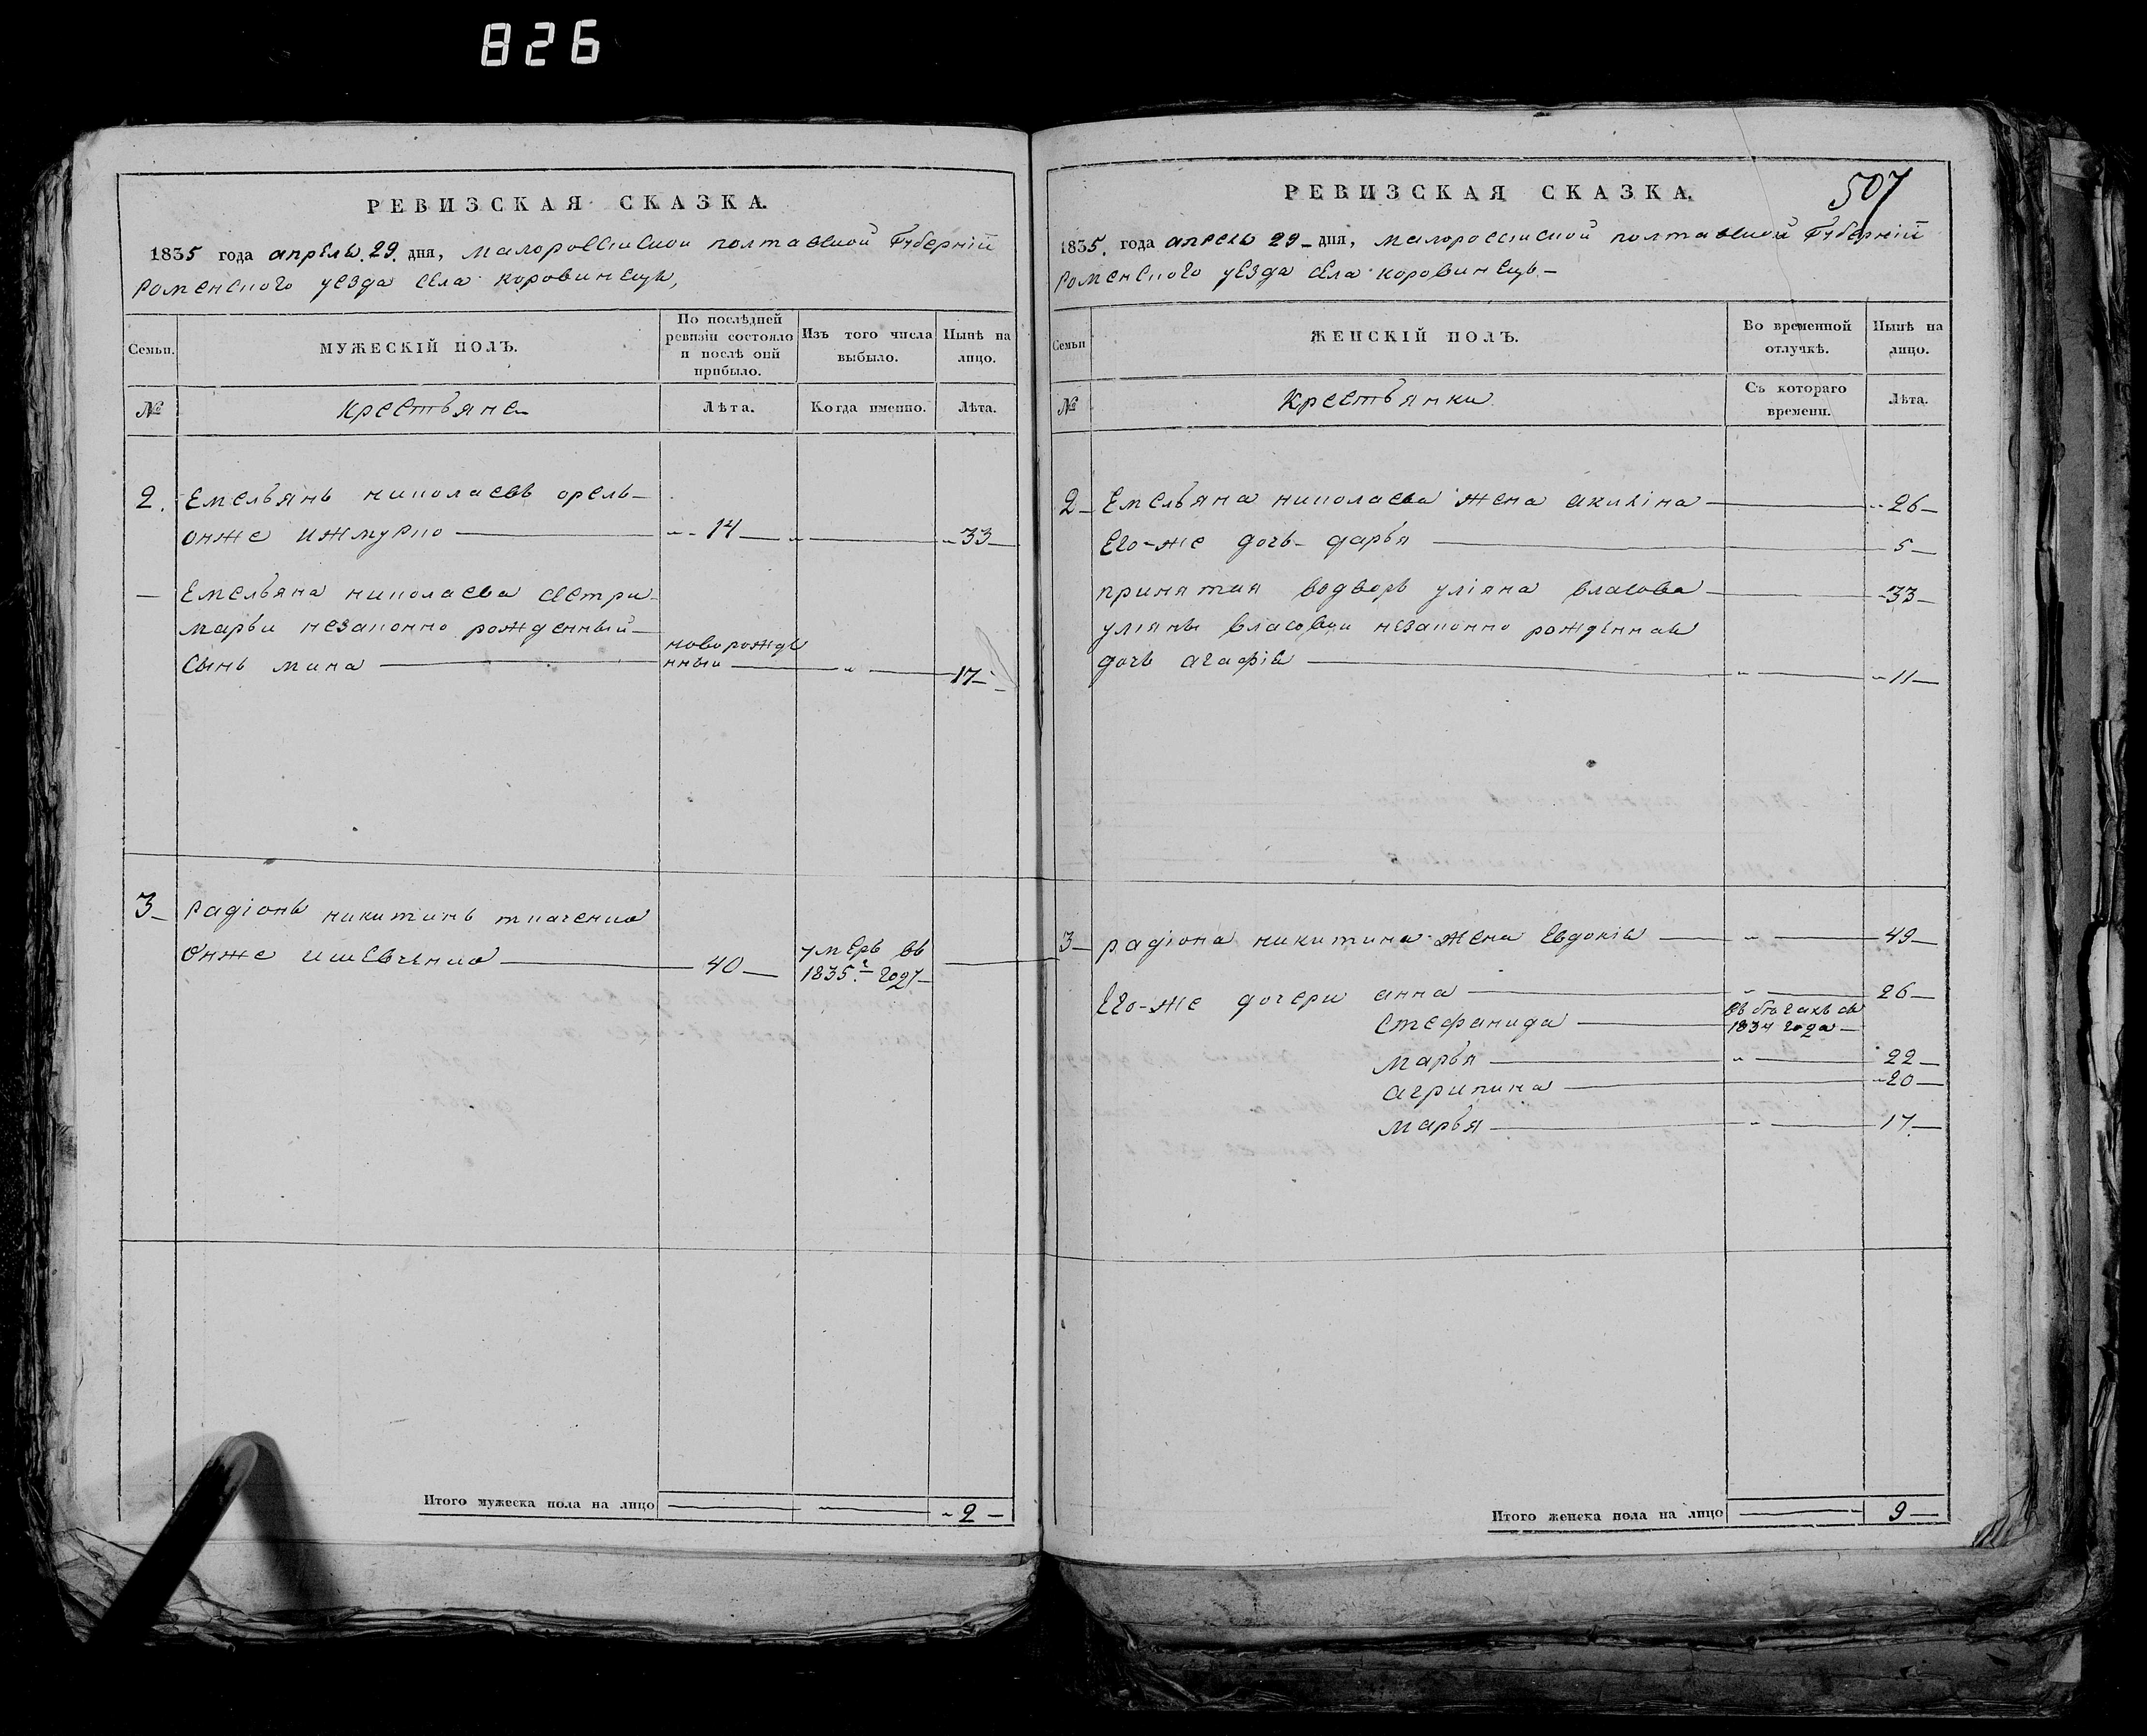 826
РЕВИЗСКАЯ СКАЗКА.
1835 года апреля 29. дня, малороссийской полтавской Губерній
роменского уезда села коровинецъ,
Семьи.
МУЖЕСКІЙ ПОЛЪ.
По послѣдней ревизіи состояло и послѣ оній прибыло.
Изъ того числа выбыло.
Нынѣ на лицо.
№
крестьяне
Лѣта.
Когда именно.
Лѣта.
2. Емельянъ николаевъ орель
онже ижмурко 14 33
Емельяна николаева сестри
марьи незаконно рожденный
сынъ мина новорожденный 17
3 радіонъ никитинъ ткаченко
Онже ишевченко 40 умеръ въ 1835 г. году
Итого мужеска пола на лицо 2
507
РЕВИЗСКАЯ СКАЗКА.
1835. года апреля 29 дня, малороссийской полтавской Губерній
роменского уезда села коровинецъ
Семьи
ЖЕНСКІЙ ПОЛЪ.
Во временной отлучкѣ.
Нынѣ на лицо.
№
крестьянки
Съ котораго времени.
Лѣта.
2 Емельяна николаева жена акилина 26
Его-же дочь дарья 5
принятая водворъ уліяна власова 33
уліяны власовой незаконно рожденная
дочь агафія 11
3 радіона никитина жена Евдокія 49
Его-же дочери анна 26
стефанида въ бѣгахъ съ 1834 года
марья 22
агрипина 20
марья 17
Итого женска пола на лицо 9